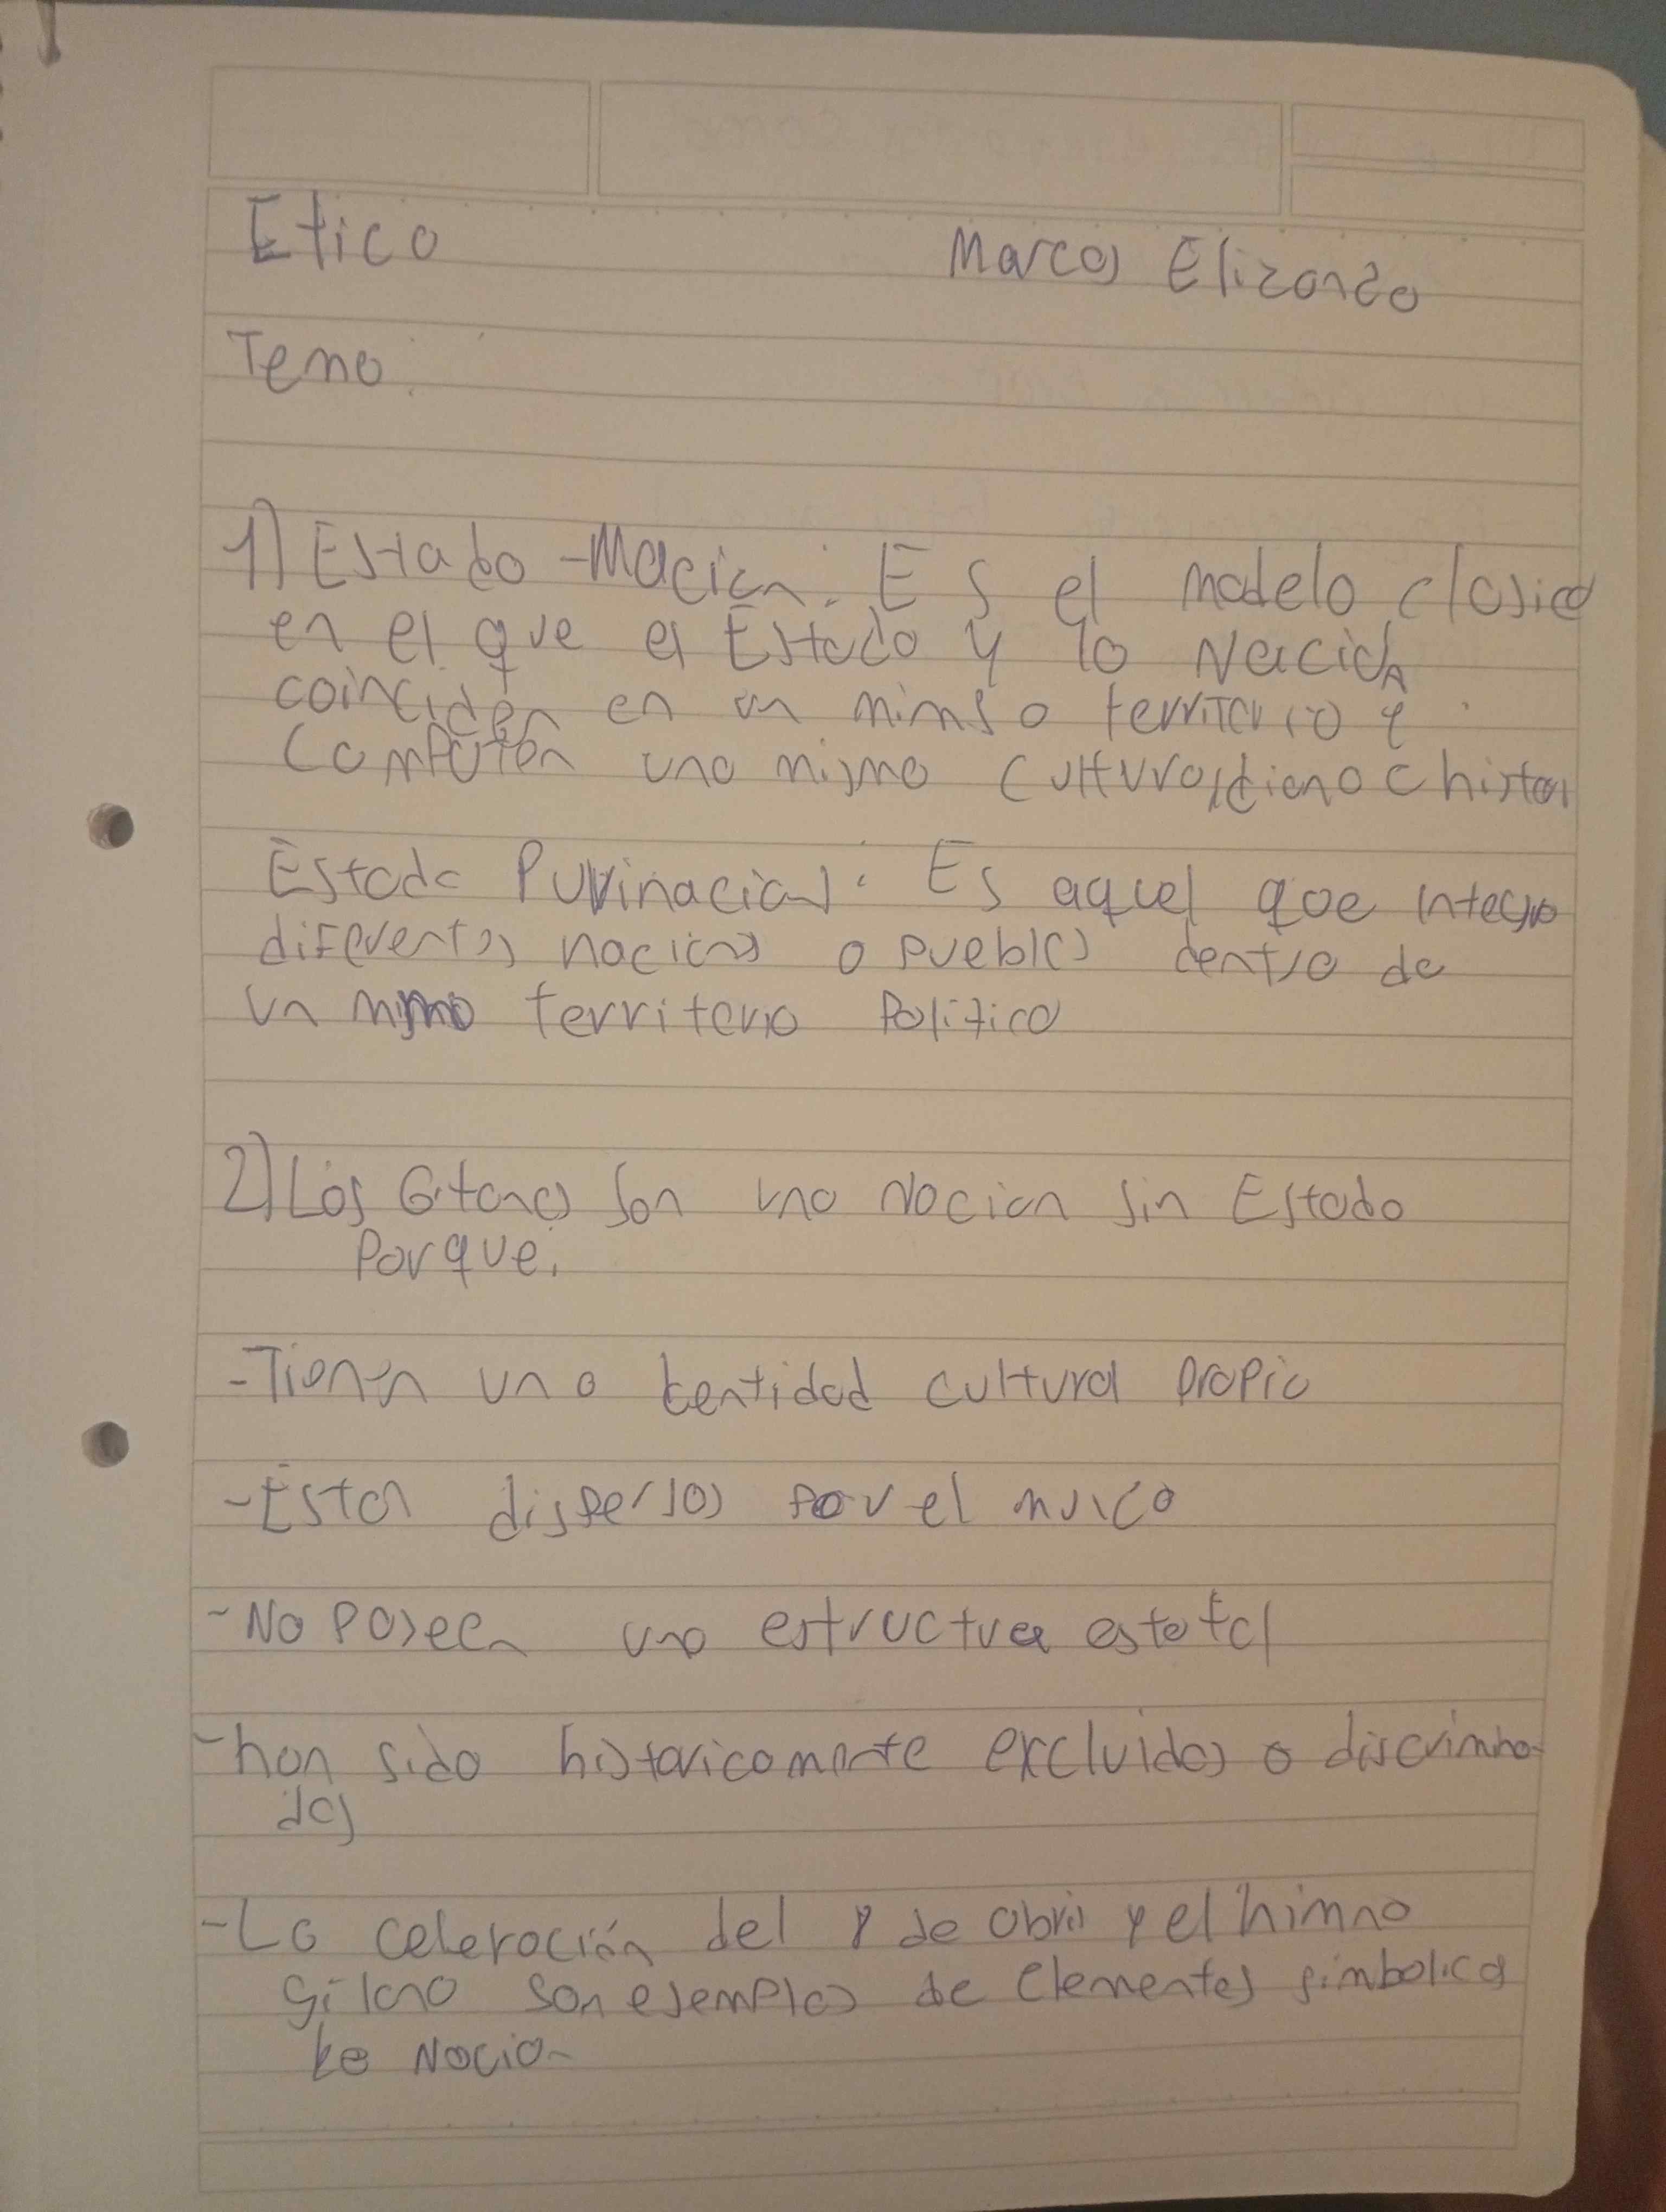 Etica Marcos Elizondo
Tema:
1) Estado-Nacion: Es el modelo clasico
en el que el Estado y la Nacion
coinciden en un mimso territorio y
comparten una misma cultura, idioma e histor
Estado Purinacional: Es aquel que integra
diferentes nacions o pueblos dentro de
un mismo territorio Politico
2) Los Gitanos son una Nacion sin Estado
Porque.
-Tienen una identidad cultural propia
-Estan dispersos por el mundo
-No Poseen una estructura estatal
-han sido historicamente excluidos o discrimina-
dos
-La celeración del 8 de abril y el himno
Gitano son ejemplos de Elementos simbolicos
de Nacion